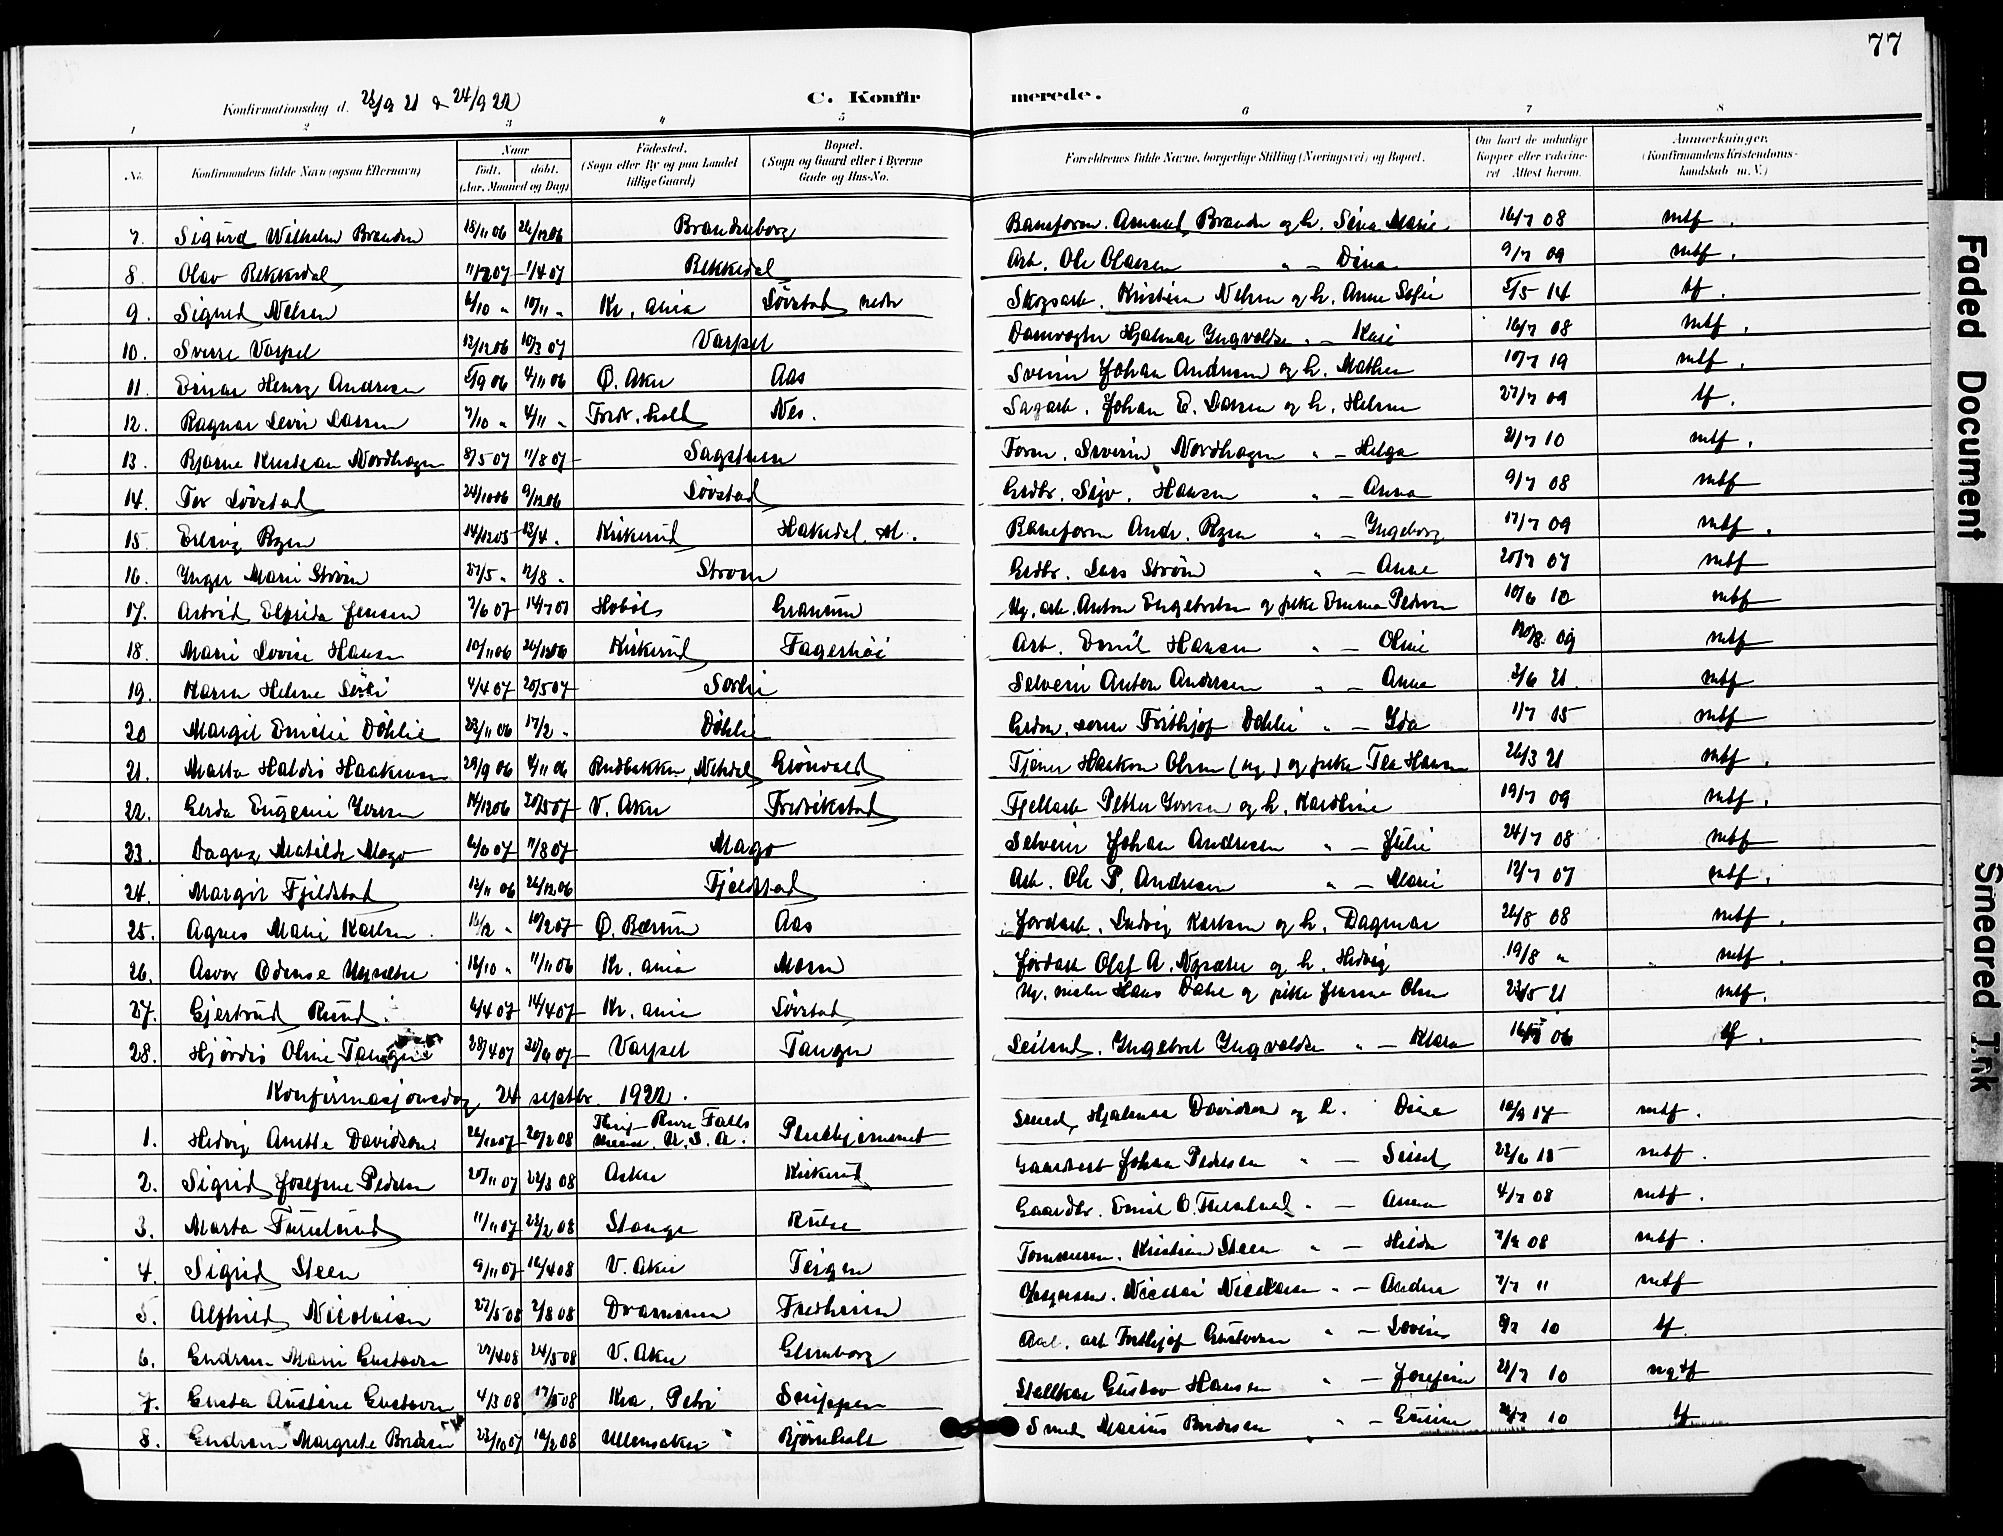 77
Konfirmationsdag d. 25/9 21 & 24/9 22
C. Konfirmerede.
1 2 3 4 5 6 7 8
No.
Konfirmandens fulde Navn (ogsaa Efternavn)
Naar
født. døbt.
(Aar, Maaned og Dag)
Fødested.
(Sogn eller By og paa Landet
tillige Gaard)
Bopæl.
(Sogn og Gaard eller i Byerne
Gade og Hus-No.
Forældrenes fulde Navne, borgerlige Stilling (Næringsvei) og Bopæl.
Om havt de naturlige
Kopper eller vaccine-
ret Attest herom.
Anmærkninger.
(Konfirmandens Kristendoms-
kundskab m. V.)
7. Sigurd Wilhelm Branden 18/11 06 26/12 06 Brandenborg Baneform. Amund Branden og h. Sina Marie 16/7 08 mtf.
8. Olav Bekkedal 1/4 07 Bekkedal Arb. Ole Olaesen " – Dina 9/7 09 mtf.
9. Sigurd Nilsen 6/10 " 10/11 " Kr.ania Løvstad nedr Skogsarb. Kristian Nilsen og h. Anne Sofie 5/5 14 tf.
10. Sverre Varpet 12/12 06 10/3 07 Varpet Damvogter Hjalmar Yngvoldsen " – Kari 16/7 08 mtf.
11. Einar Henry Andresen 5/9 06 4/11 06 Ø. Aker Aas Sveiser Johan Andresen og h. Mathea 10/7 19 mtf.
12. Ragnar Levi Larsen 7/10 " 4/11 " Fredr.hald Nes. Sagarb. Johan E. Larsen og h. Helene 27/7 09 tf.
13. Bjarne Kristian Nordhagen 8/5 07 11/8 07 Sagstuen Form. Severin Nordhagen " – Helga 21/7 10 mtf.
14. Tor Løvstad 24/10 06 9/12 06 Løvstad Grdbr. Sigv. Hansen " – Anna 9/7 08 mtf
15. Erling Rgen 14/12 05 13/4 " Kirkerud Hakedal st. Baneform Andr. Rgen " – Yngeborg 17/7 09 mtf.
16. Ynger Marie Strøm 27/5 " 12/8 " Strøm Grdbr. Lars Strøm " – Anne 20/7 07 mtf
17. Astrid Elfrida Jensen 7/6 07 14/7 07 Hobøl Granum Ug. arb. Anton Engebretsen og pike Emma Pedersen 10/6 10 mtf
18. Marie Lovise Hansen 10/11 06 26/12 06 Kirkerud Fagerhøi Arb. Emil Hansen " – Oline 09 mtf
19. Karen Helene Sørli 4/4 07 20/5 07 Sørli Selveier Anton Andersen " – Anna 2/6 21. mtf
20 Margit Emilie Døhlie 23/11 06 17/2 " Døhlie Frithjof Døhlie " – Yda 1/7 05 mtf
21. Marta Haldis Haakensen 29/9 06 4/11 06 Rudbakken, Nitedal Grønvold Tjener Haakon Olsen (ug.) og pike Tea Hansen 26/3 21 mtf.
22. Gerda Eugenie Yversen 14/12 06 20/5 07 V. Aker Fredrikstad Fjellarb. Petter Yversen og h. Karoline 19/7 09 mtf.
23. Dagny Matilde Mago 6/6 07 11/8 07 Mago Selveier Johan Andresen " – Julie 24/7 08 mtf
24. Margit Fjeldstad 12/11 06 26/12 06 Fjeldstad Arb. Ole P. Andresen " – Marie 12/7 07 mtf.
25. Agnes Marie Karlsen. 11/2 " 10/2 07 Ø. Bærum Aas Jordarb. Ludvig Karlsen og h. Dagmar 26/8 08 mtf.
26. Asvor Odense Nysæter 16/10 " 11/11 06 Kr.ania Moen Jordarb Olaf A. Nysæter og h. Hedvig 19/8 " mtf.
27. Gjertrud Rund. 6/4 07 14/4 07 Kr.ania Løvstad Ug. Hans Dahl og pike Jenssine Olsen 23/5 21 mtf.
28. Hjørdis Oline Tangen 28/4 07 20/6 07 Varpet Tangen Yngebret Yngvoldsen " – Klara 06 tf.
Konfirmasjonsdag 24 septbr. 1922.
1. Hedvig Anette Davidsen 26/12 07 20/2 08 River Falls U.S.A. Smed Hjalmar Davidsen og h. Dina 10/9 17 mtf.
2. Sigrid Josefine Pedersen 20/11 07 22/3 08 Asker Kirkerud Gaardbest Johan Pedersen " – 22/6 15 mtf.
3. Marta Furulund 11/11 07 23/2 08 Stange Gaardbr. Emil O. " – Anna 4/7 08 mtf.
4. Sigrid Steen 9/11 07 16/4 08 V. Aker Teigen Tømmerm. Kristian Steen " – Hilda 08 mtf.
5. Alfhild Nicolaisen 27/5 08 2/8 08 Drammen Fredheim Nicolai Nicolaisen " – Andrea 7/7 11 mtf
6. Gudrun Marie Gustavsen 27/4 08 24/5 08 V. Aker Glenborg arb Frithjof Gustavsen " – Lovise 10 tf.
7. Gusta Austine Gustavsen 4/3 08 08 Kra. Petri Snippen Stallkar Gustav Hansen " – Josefine 21/7 10 mgtf
8. Gudrun Margrete Brodersen 23/10 07 16/2 08 Ullensaker Bjørnholt Smed Marius Brodersen " – 10 tf
Faded Document
Smeared Ink